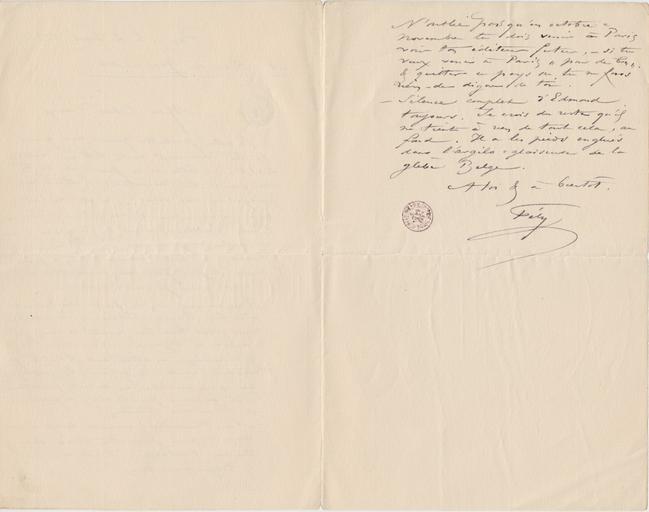 N'oublie pas qu'en octobre-
novembre tu dois venir à Paris
voir ton éditeur futur, – si tu
veux venir à Paris
& quitter ce pays où tu ne feras
rien de digne de toi.
– Silence complet d'Edmond
toujours. Je crois du reste qu'il
ne tient à rien de tout cela, au
fond. Il a les pieds englués
dans l'argile glaiseuse de la
glèbe Belge.
A toi & à bientôt.
Fély